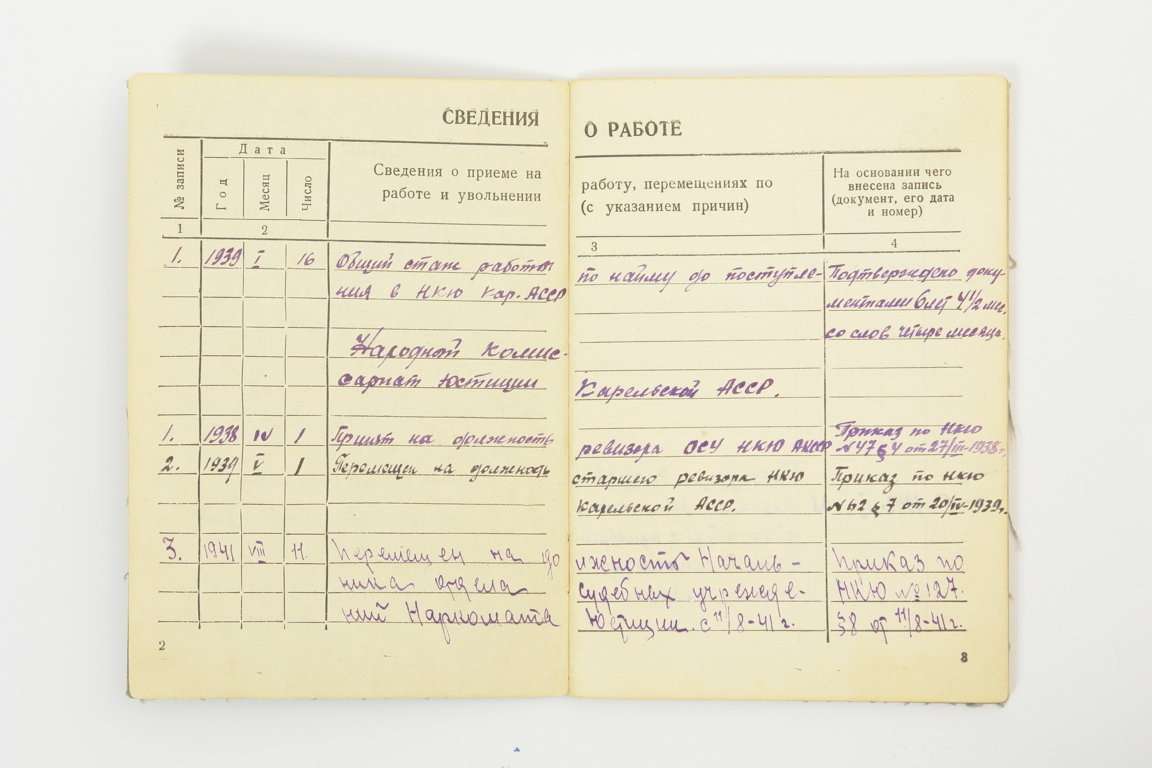 СВЕДЕНИЯ О РАБОТЕ
№ записи
Дата
Год
Месяц
Число
Сведения о приеме на работу, перемещениях по
работе и увольнении (с указанием причин)
На основании чего
внесена запись
(документ, его дата
и номер)
1 2 3 4
1. 1939 I 16 Общий стаж работы по найму до поступле- Подтверждено доку-
ния в НКЮ Кар. АССР ментами 6 лет 4 1/2 мес.
со слов четыре месяца.
Народный Комис-
сариат Юстиции Карельской АССР.
1. 1938 IV 1 Принят на должность ревизора ОСУ НКЮ АКССР Приказ по НКЮ
№47 § 4 от 27/III-1938г.
2. 1939 V 1 Перемещен на должность старшего ревизора НКЮ Приказ по НКЮ
Карельской АССР. №62 § 7 от 20/IV-1939г.
3. 1941 VIII 11. Перемещен на должность Началь- Приказ по
ника отдела судебных учрежде- НКЮ №127.
ний Наркомата Юстиции с 11/8-41г. §8 от 11/8-41г.
2 3